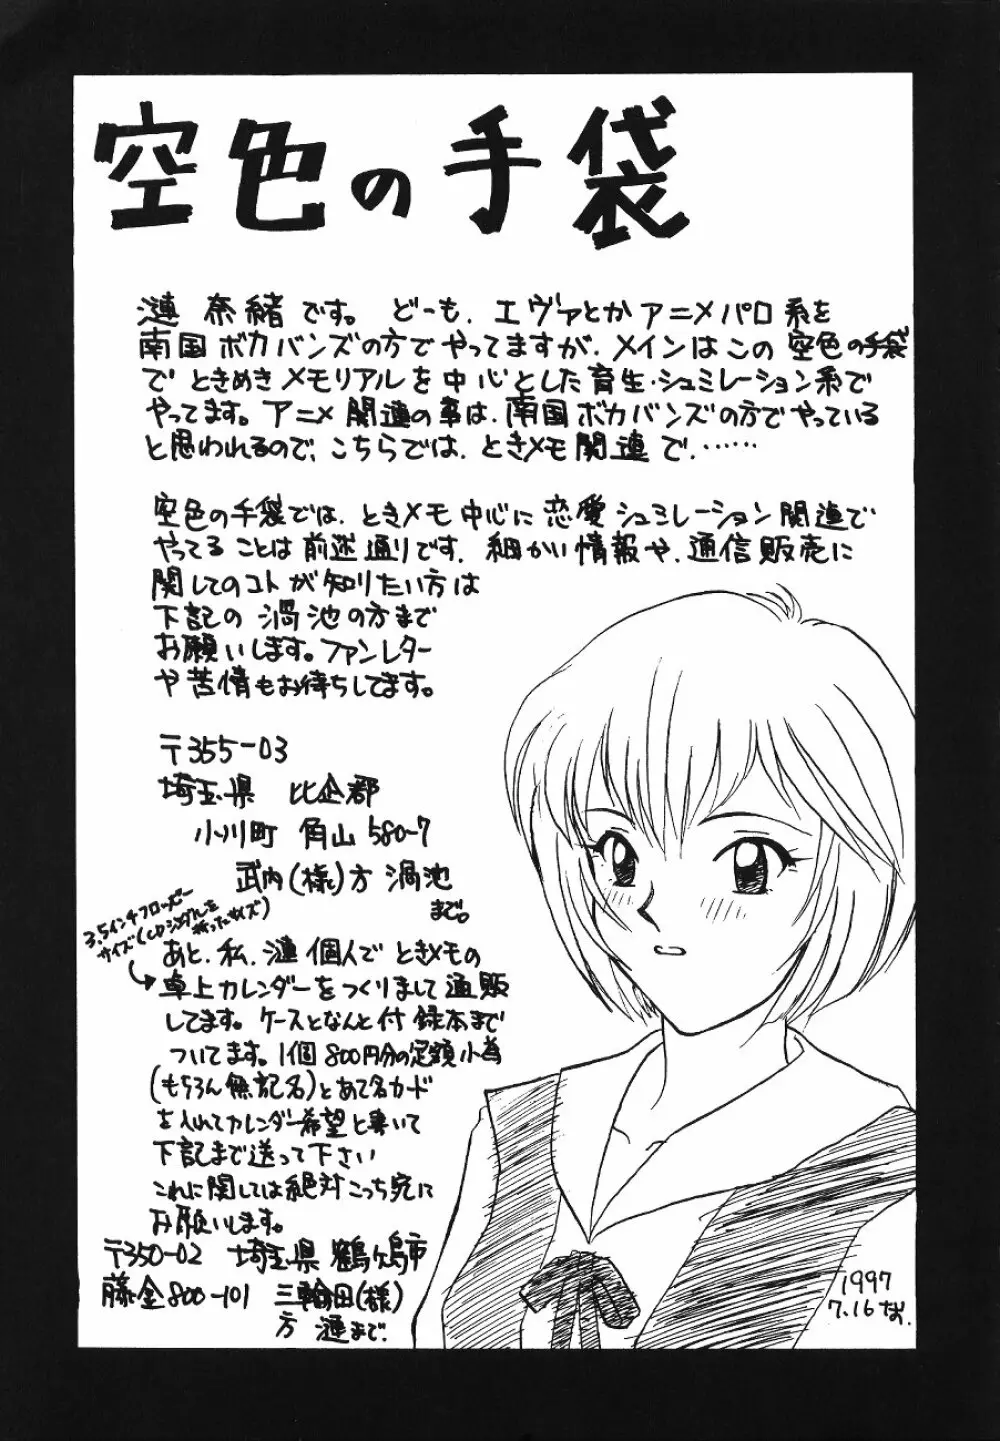 空色の手袋
漣 奈緒です。 どーも、エヴァとかアニメパロ系を
南国ボカバンズの方でやってますが、メインはこの空色の手袋
でときめきメモリアルを中心とした育生・シュミレーション系で
やってます。アニメ関連の事は、南国ボカバンズの方でやっている
と思われるので、こちらでは、ときメモ関連で、……
空色の手袋では、ときメモ中心に恋愛シュミレーション関連で
やってることは前述通りです。細かい情報や、通信販売に
関してのコトが知りたい方は
下記の 渦池の方まで
お願いします。ファンレター
や苦情もお待ちしてます。
〒355-03
埼玉県 比企郡
小川町 角山580-7
武内(様)方 渦池
まで。
3.5インチフロッピー
サイズ(CDシングルを
折ったサイズ)
あと、私、漣 個人でときメモの
卓上カレンダーをつくりまして通販
してます。ケースとなんと付録本まで
ついてます。1個800円分の定額小為
(もちろん無記名)とあて名カード
を入れてカレンダー希望と書いて
下記まで送って下さい
これに関しては絶対こっち宛に
お願いします。
〒350-02 埼玉県 鶴ヶ島市
藤金800-101 三輪田(様)
方 漣まで。
1997
7.16 なお.